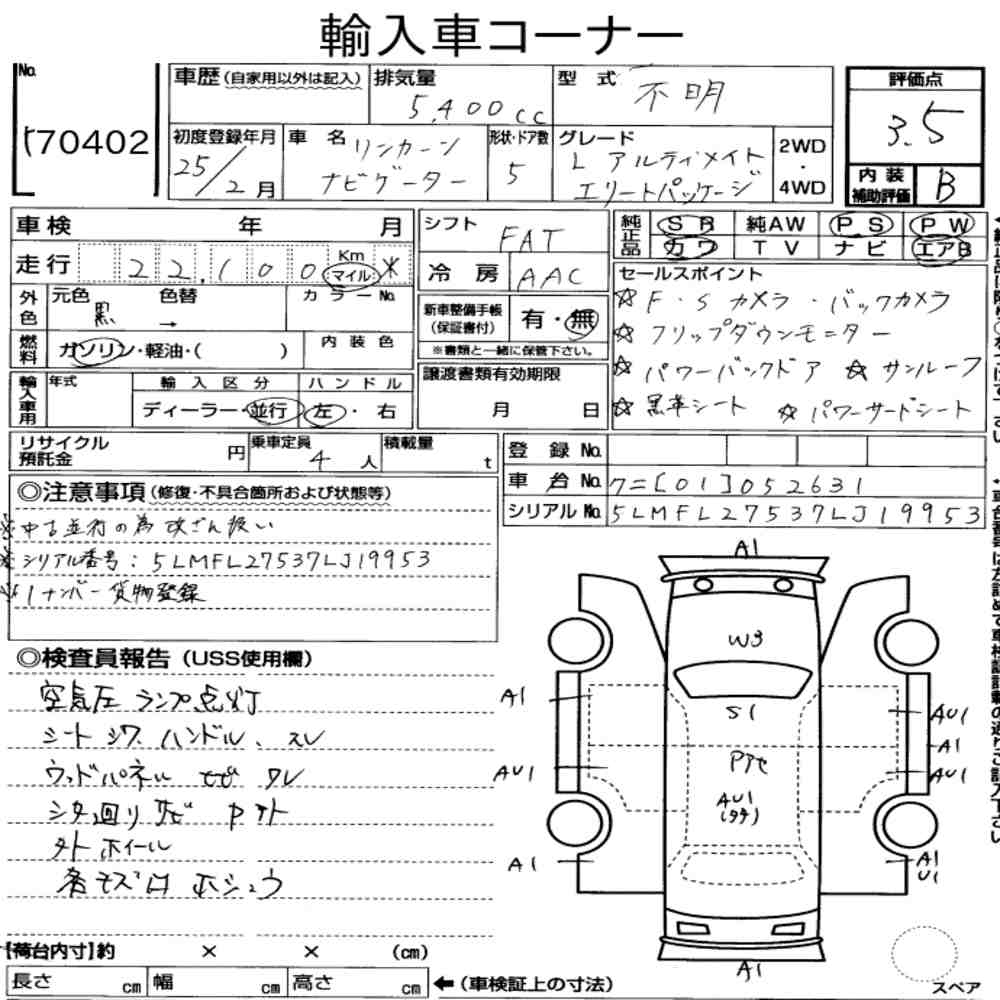 輸入車コーナー
No.
170402
車歴 (自家用以外は記入)
排気量 5,400cc
型式 不明
評価点 3.5
内装補助評価 B
初度登録年月 25/2月
車名 リンカーン ナビゲーター
形状・ドア数 5
グレード L アルティメイト エリートパッケージ
2WD・4WD
車検 年 月
走行 22,100 Km マイル ＊
外色 元色 黒 色替 → カラーNo.
燃料 ガソリン・軽油・( ) 内装色
輸入車用 年式 輸入区分 ディーラー・並行 ハンドル 左・右
シフト FAT
冷房 AAC
新車整備手帳(保証書付) 有・無
※書類と一緒に保管下さい。
譲渡書類有効期限
月 日
純正品 SR 純AW PS PW
カワ TV ナビ エアB
セールスポイント
☆F・Sカメラ・バックカメラ
☆フリップダウンモニター
☆パワーバックドア ☆サンルーフ
☆黒革シート ☆パワーサードシート
リサイクル預託金 円
乗車定員 4人
積載量 t
登録No.
車台No. クニ[01]052631
シリアルNo. 5LMFL27537LJ19953
◎注意事項 (修復・不具合箇所および状態等)
※中古並行の為改ざん扱い
※シリアル番号：5LMFL27537LJ19953
※1ナンバー貨物登録
◎検査員報告 (USS使用欄)
空気圧 ランプ点灯
シート シワ ハンドル、スレ
ウッドパネル ヒビ ワレ
シタ廻リ サビ
外ホイール
各モズロ ホシュウ
A1
W3
S1
A1
AU1
AU1
A1
AU1
AU1
A1
A1
U1
A1
スペア
【荷台内寸】約 × × (cm)
長さ cm 幅 cm 高さ cm ←(車検証上の寸法)